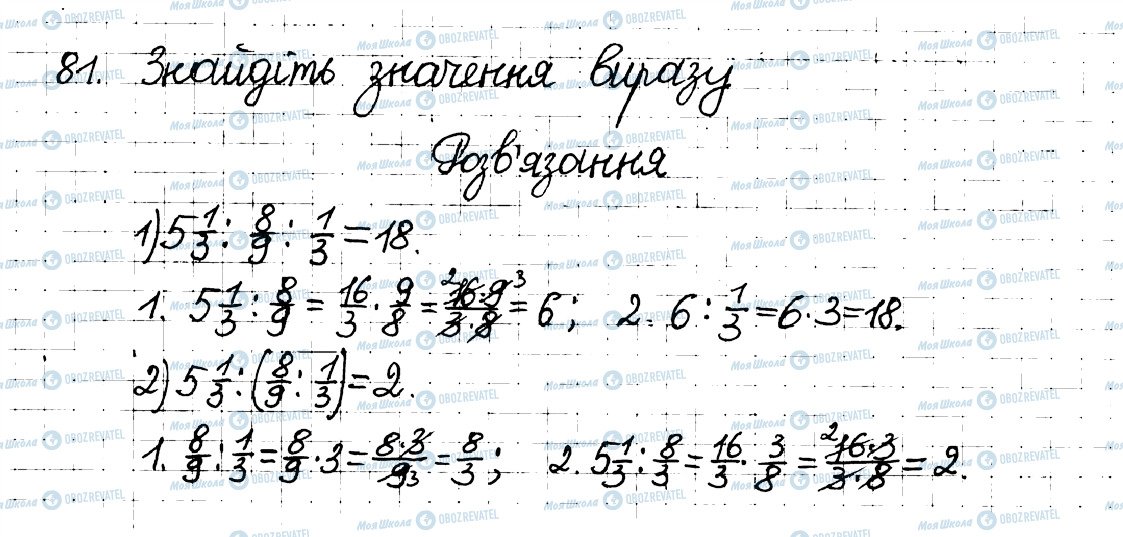 81. Знайдіть значення виразу
Розв'язання
1) 5 1/3 : 8/9 : 1/3 = 18.
1. 5 1/3 : 8/9 = 16/3 · 9/8 = 16·9/3·8 = 6; 2. 6 : 1/3 = 6·3 = 18.
2) 5 1/3 : (8/9 : 1/3) = 2.
1. 8/9 : 1/3 = 8/9 · 3 = 8·3/9 = 8/3; 2. 5 1/3 : 8/3 = 16/3 · 3/8 = 16·3/3·8 = 2.
Моя Школа OBOZREVATEL